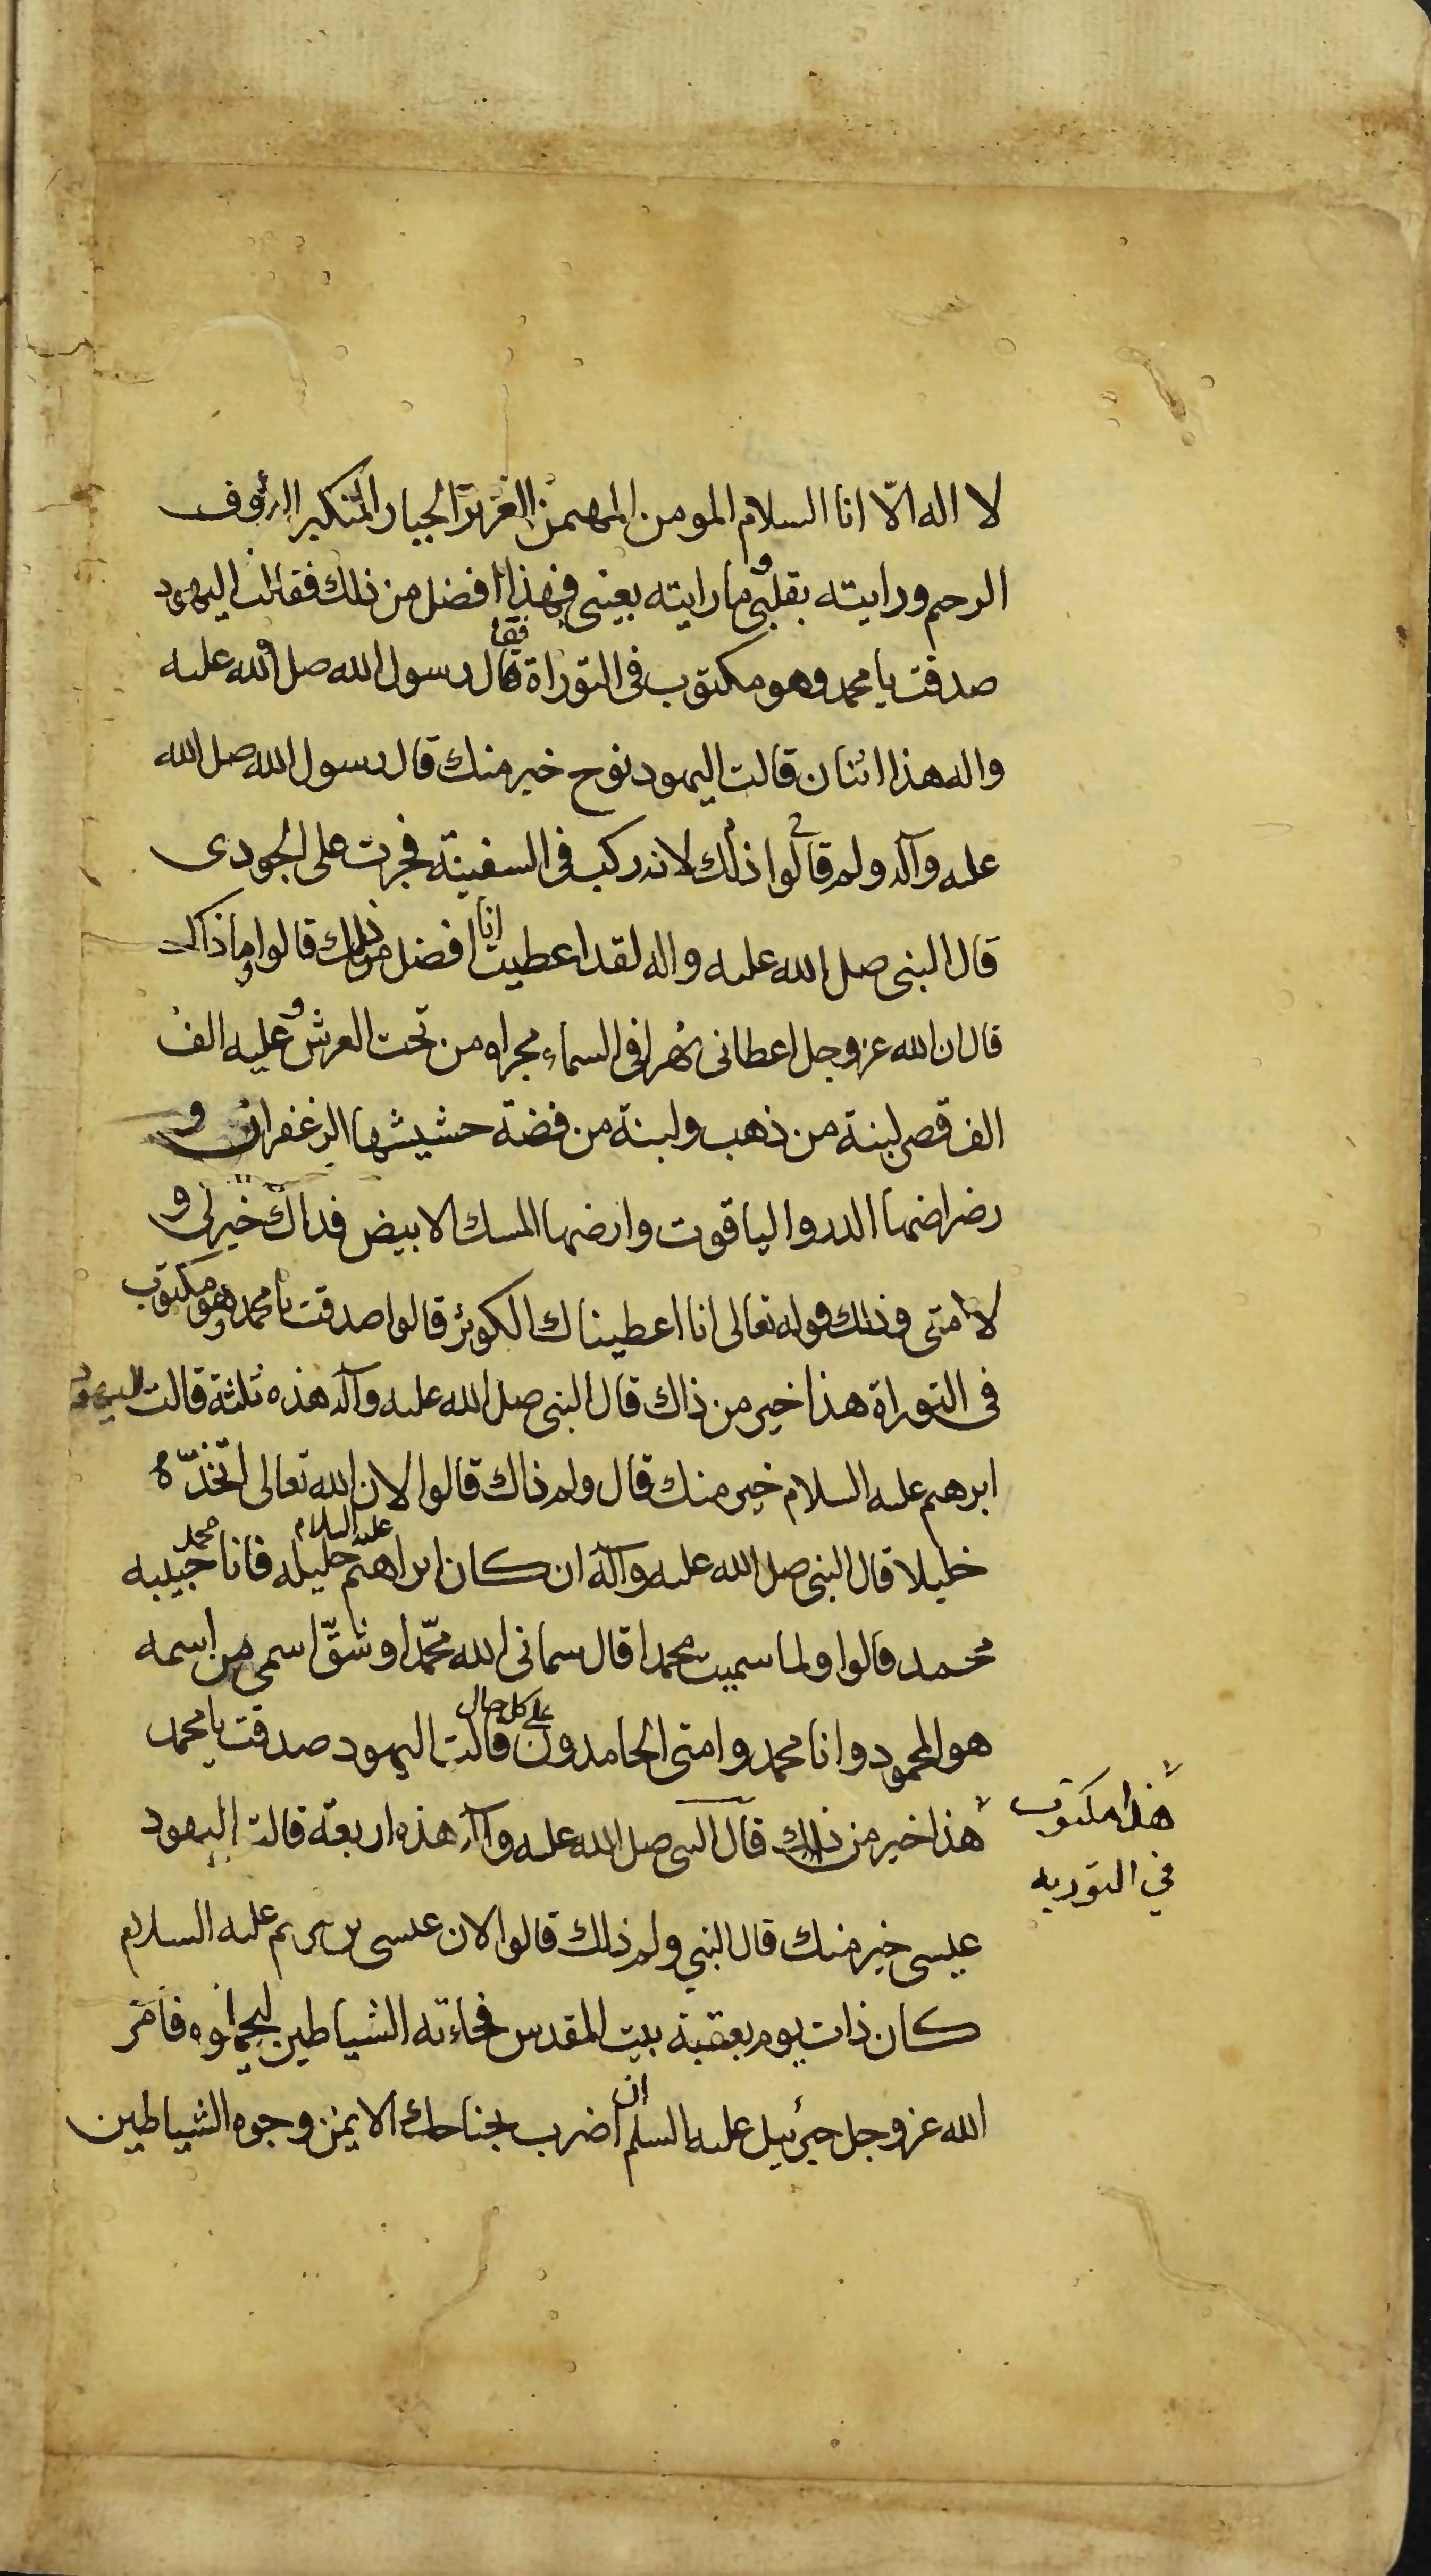 لا اله الّا انا السلام المومن المهيمن العزيز الجبار المتكبر الرؤف
الرحيم ورايته بقلبى وما رايته بعينى فهذا افضل من ذلك فقالت اليهود
صدقت يا محمد وهو مكتوب فى التوراة فقال رسول الله صلى الله عليه
واله هذا اثنان قالت اليهود نوح خير منك قال رسول الله صلى الله
عليه وآله ولم قالوا ذلك لانه ركب فى السفينة فجرت على الجودى
قال النبى صلى الله عليه واله لقد اعطيت انا افضل من ذلك قالوا وما ذاك
قال ان الله عز وجل اعطانى نهرا فى السماء مجراه من تحت العرش وعليه الف
الف قصر لبنة من ذهب ولبنة من فضة حشيشها الزعفران و
رضراضها الدر والياقوت وارضها المسك الابيض فذاك خير لى و
لامتى وذلك قوله تعالى انا اعطيناك الكوثر قالوا صدقت يا محمد وهو مكتوب
فى التوراة هذا خير من ذاك قال النبى صلى الله عليه وآله هذه ثلثة قالت اليهود
ابرهيم عليه السلام خير منك قال ولم ذاك قالوا لان الله تعالى اتخذه
خليلا قال النبى صلى الله عليه وآله ان كان ابراهيم عليه السلام خليله فانا حبيبه محمد
محمد قالوا ولما سميت محمدا قال سمانى الله محمّدا وشقّ اسمى من اسمه
هو المحمود وانا محمد وامتى الحامدون على كل حال قالت اليهود صدقت يا محمد
هذا خير من ذلك قال النبى صلى الله عليه وآله هذه اربعة قالت اليهود
هذا مكتوب
في التوريه
عيسى خير منك قال النبي ولم ذلك قالوا لان عيسى بن مريم عليه السلام
كان ذات يوم بعقبة بيت المقدس فجاءته الشياطين ليحملوه فامر
الله عز وجل جبرئيل عليه السلم ان اضرب بجناحك الايمن وجوه الشياطين